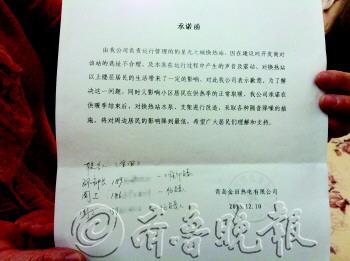 承诺函
由我公司负责运行管理的的星光大城换热站，因在建设时开发商对
该站的选址不合理，及水泵在运行过程中产生的声音及震动，对换热站
以上楼层居民的生活带来了一定的影响，对此我公司表示歉意，为了解
决这一问题，同时又影响小区居民在供热季的正常取暖，我公司承诺在
供暖季结束后，对换热站水泵、支架进行改造，采取各种隔音降噪的措
施，将对周边居民的影响降到最低，希望广大居民们理解和支持。
青岛金田热电有限公司
2015.12.10
齐鲁晚报